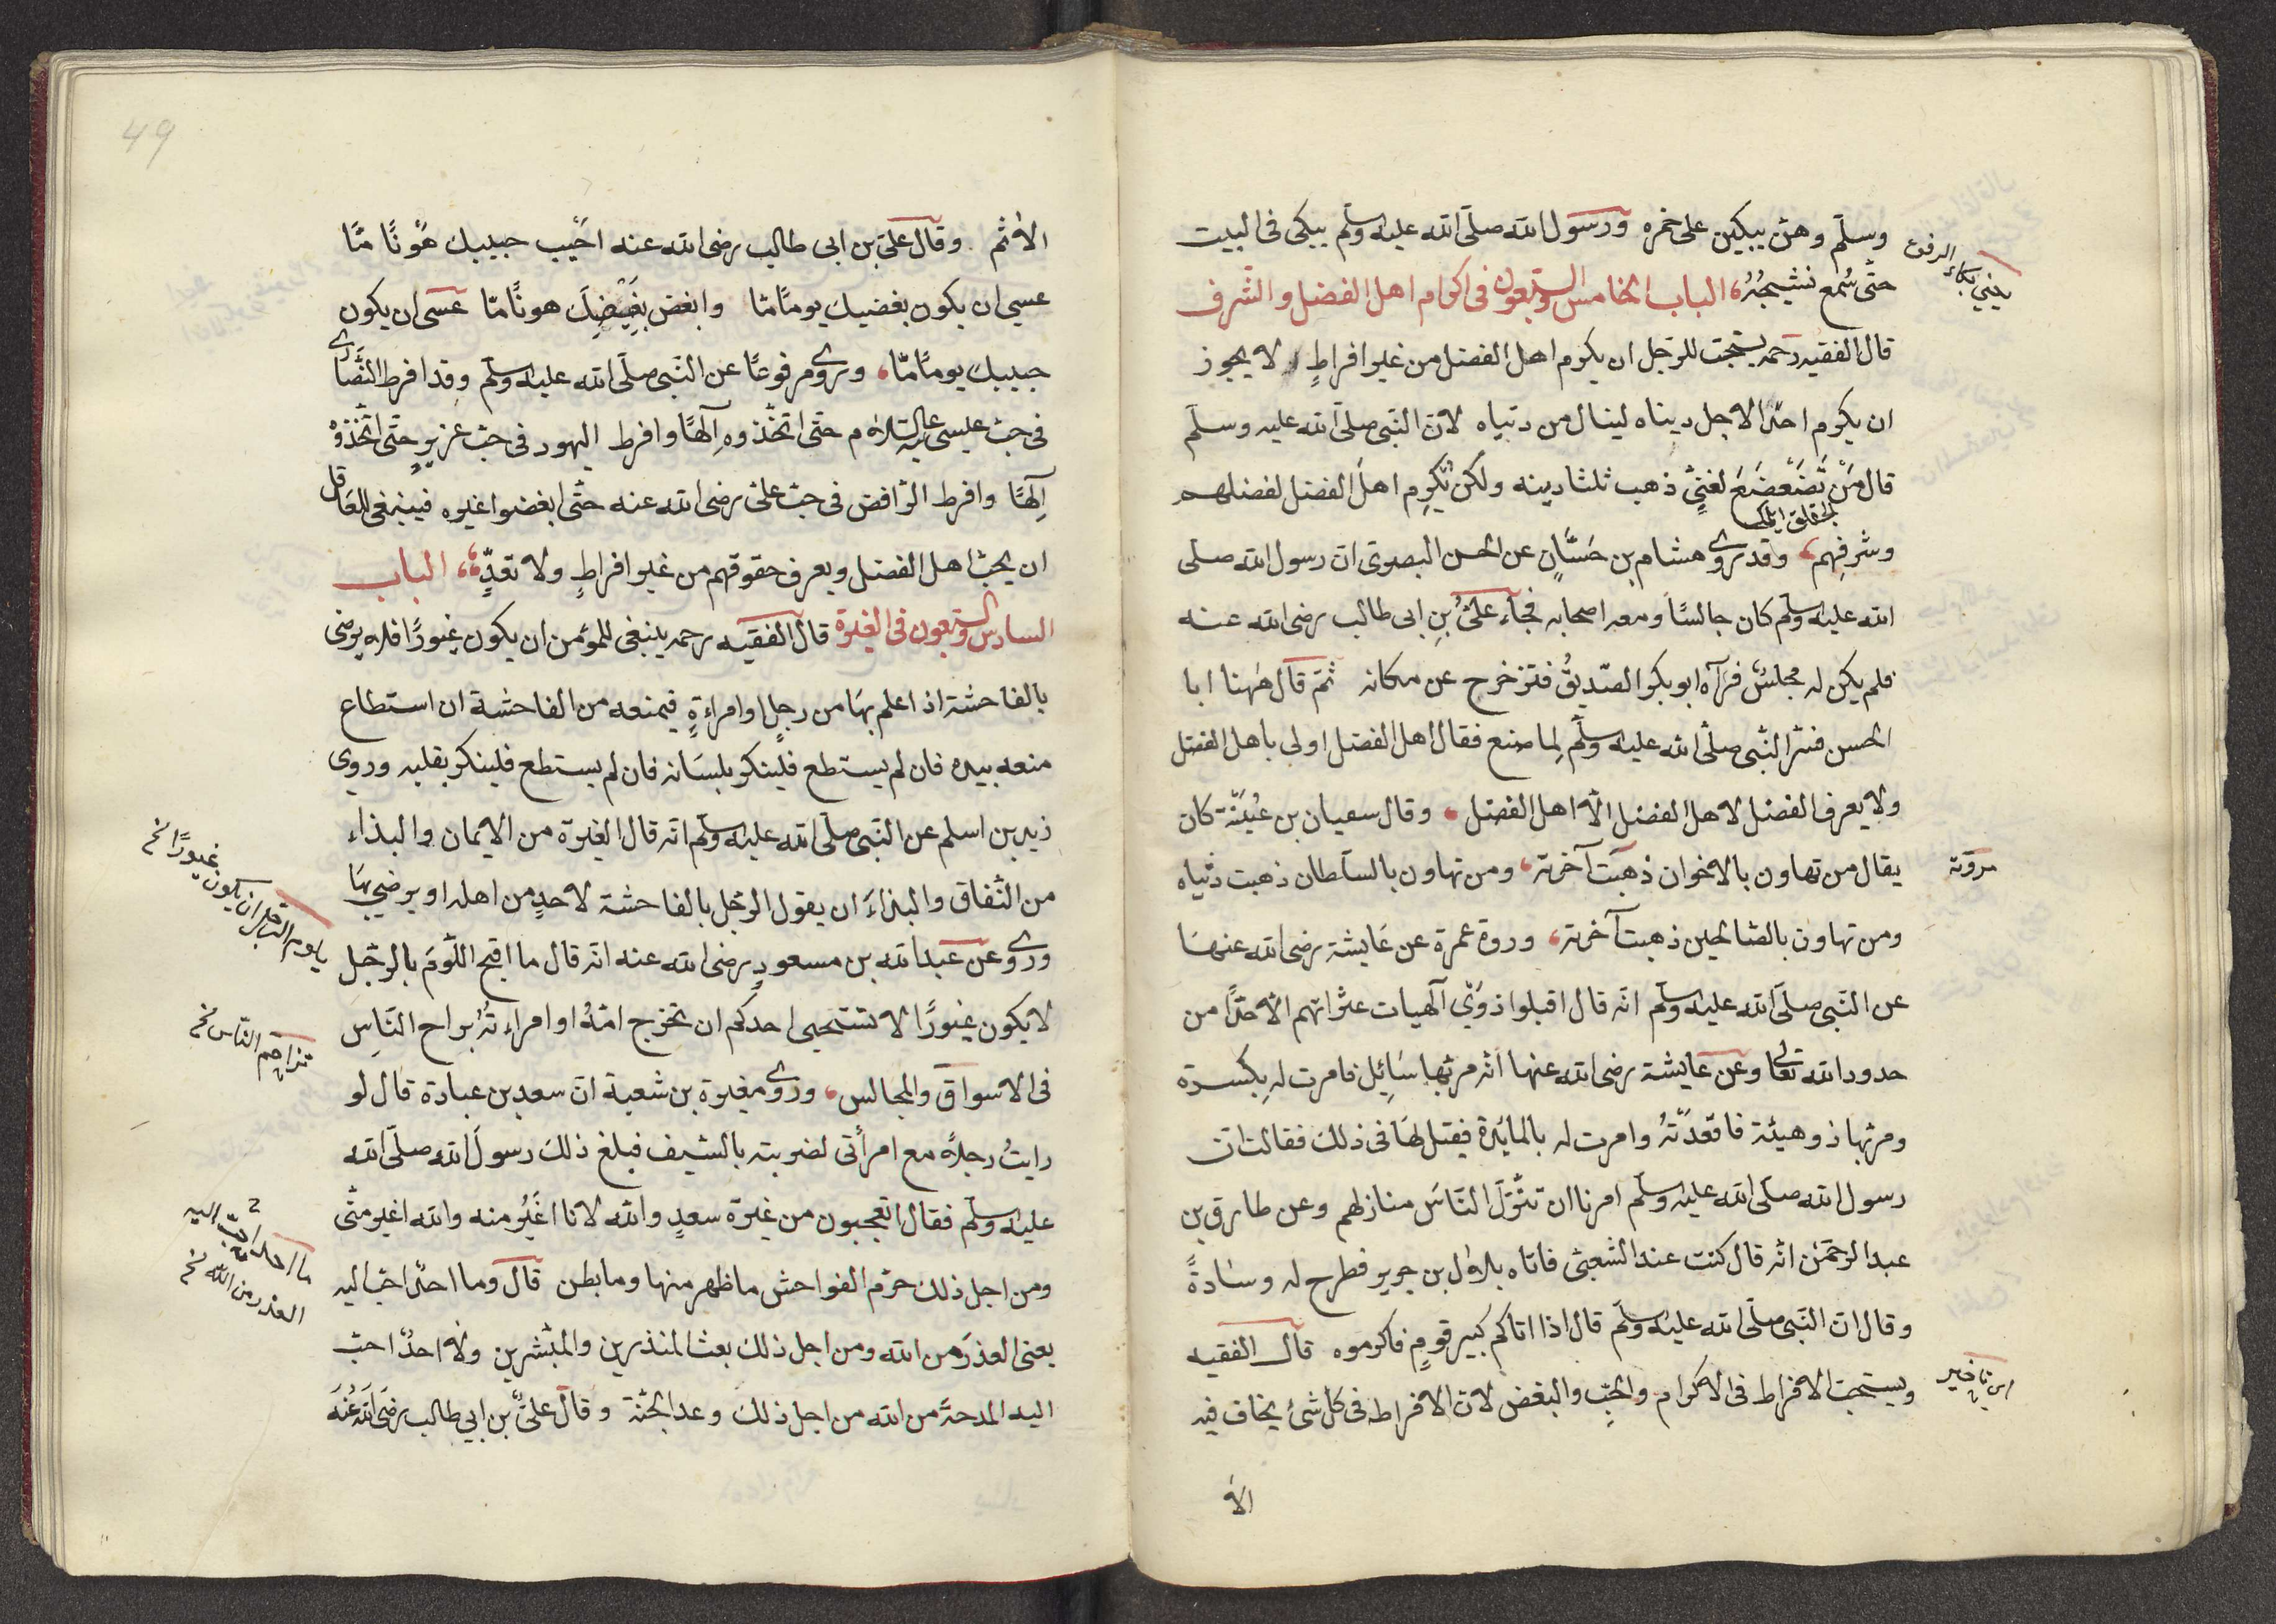 وسلّم وهنّ يبكين على خمره ورسول الله صلّى الله عليه وسلّم يبكى فى البيت
حتّى سُمع نشيجُهُ، الباب الخامس والسبعون فى اكرام اهل الفضل والشرف
قال الفقيه رحمه يستحبّ للرّجل ان يكرم اهل الفضل من غير افراطٍ لا يجوز
ان يكرم احدًا لاجل ديناه لينال من دنياه لانّ النّبى صلّى الله عليه وسلّم
قال مَنْ تَضَعْضَعَ لغنىٍّ ذهب ثلثا دينه ولكن يُكرِم اهلَ الفضل لفضلهم
وشرفِهم، وقد روى هشام بن حَسَّانٍ عن الحسن البصرىّ انّ رسول الله صلى
الله عليه وسلّم كان جالسًا ومعه اصحابه فجآء علىُّ بن ابى طالب رضى الله عنه
فلم يكن له مجلسٌ فرآه ابو بكر الصّديقُ فتزخرح عن مكانه ثمّ قال هٰهنا ابا
الحسن فسّر النّبى صلّى الله عليه وسلّم لِما صنع فقال اهل الفضل اولى باهل الفضل
ولا يعرف الفضل لاهل الفضل الّا اهل الفضل، وقال سعيان بن عُيَيْنَة كان
يقال من تهاون بالاخوان ذهبَت آخرته، ومن تهاون بالسلطان ذهبت دنياه
ومن تهاون بالصّالحين ذهبت آخرته، وروة عمرة عن عَايشة رضى الله عنهَا
عن النّبى صلّى الله عليه وسلّم انّه قال اقبلوا ذَوِى الهيات عثراتهم الّا حدًّا من
حدود الله تعالى وعن عايشة رضى الله عنها انّه مرّ بها سَايِل فامرت له بِكِسرة
ومرّ بها ذو هيئة فاقعَدَتْهُ وامرت له بالمايدة فقيل لهَا فى ذلك فقالت انّ
رسول الله صلّى الله عليه وسلّم امرنا ان ننُزّل النّاسَ منازلهم وعن طارق بن
عبد الرحمن انّه قال كنت عند الشعبىّ فاتاه بلال بن جرير فطرح له وسَادةً
وقال انّ النّبى صلّى الله عليه وسلّم قال اذا اتاكم كبير قومٍ فاكرموه قال الفقيه
ويستحبّ الافراط فى الاكرام والحبّ والبغض لانّ الافراط فى كل شئ يخاف فيه
الا
يعنى بكاء الرفوع
مروته
الاثم وقال علىّ بن ابى طالب رضى الله عنه احْبِب حبيبك هَوْنًا مّا
عسي ان يكون بغضيك يومًا مّا وابغض بغِيْضِكَ هونًا مّا عسَى ان يكون
حبيبك يومًا مّا، وروى مرفوعًا عن النّبى صلّى الله عليه وسلّم وقد افرط النّصَارى
فى حبّ عيسى عليه السّلام حتّى اتخّذوه اِلٰهًا وافرط اليهود فى حبّ عزيرٍ حتّى اتّخذوه
اِلٰهًا وافرط الرّافض فى حبّ علىّ رضى الله عنه حتّى ابغضوا غيره فينبغى للعَاقل
ان يحبّ اهل الفضل ويعرف حقوقهم من غير افراطٍ ولا تعدٍّ، الباب
السادس والسبعون فى الغيرة قال الفقيه رحمه ينبغى للمؤمن ان يكون غيورًا فلا يرضى
بالفاحشة اذا علم بهَا من رجلٍ او امراءةٍ فيمنعه من الفاحشة ان استطاع
منعه بيده فان لم يستطع فلينكر بلسَانه فان لم يستطع فلينكر بقلبه وروى
زيد بن اسلم عن النّبى صلّى الله عليه وسلّم انّه قال الغيرة من الايمان والبذاء
من النّفاق والبذاءَ ان يقول الرجّل بالفاحشة لاحدٍ من اهله او يرضى بهَا
وروى عن عبد الله بن مسعودٍ رضى الله عنه انّه قال ما اقبح اللَّومَ بالرجّل
لا يكون غيورًا لا تستحيى احدكم ان تخرج امتهُ او امراءتهُ براح النّاسِ
فى الاسواق والمجالس، وروى مغيرة بن شعبة انّ سعد بن عبادة قال لو
رايتُ رجلًا مع امرأتى لضربته بالسّيف فبلغ ذلك رسولَ الله صلّى الله
عليه وسلّم فقال اتعجبون من غيرة سعدٍ والله لانا اغيَرُ منه والله اغير منّى
ومن اجل ذلك حرّم الفواحش ما ظهر منها وما بطن قال وما احدٌ احبّ اليه
يعنى العذرَ من الله ومن اجل ذلك بعث المنذرين والمبشّرين ولا احدٌ احبّ
اليه المدحةَ من الله من اجل ذلك وعد الجنّة وقال علىّ بن ابى طالب رضى الله عنه
تزاحم النّاس نخ
ما احد احبّ اليه
العذر من الله نخ
49